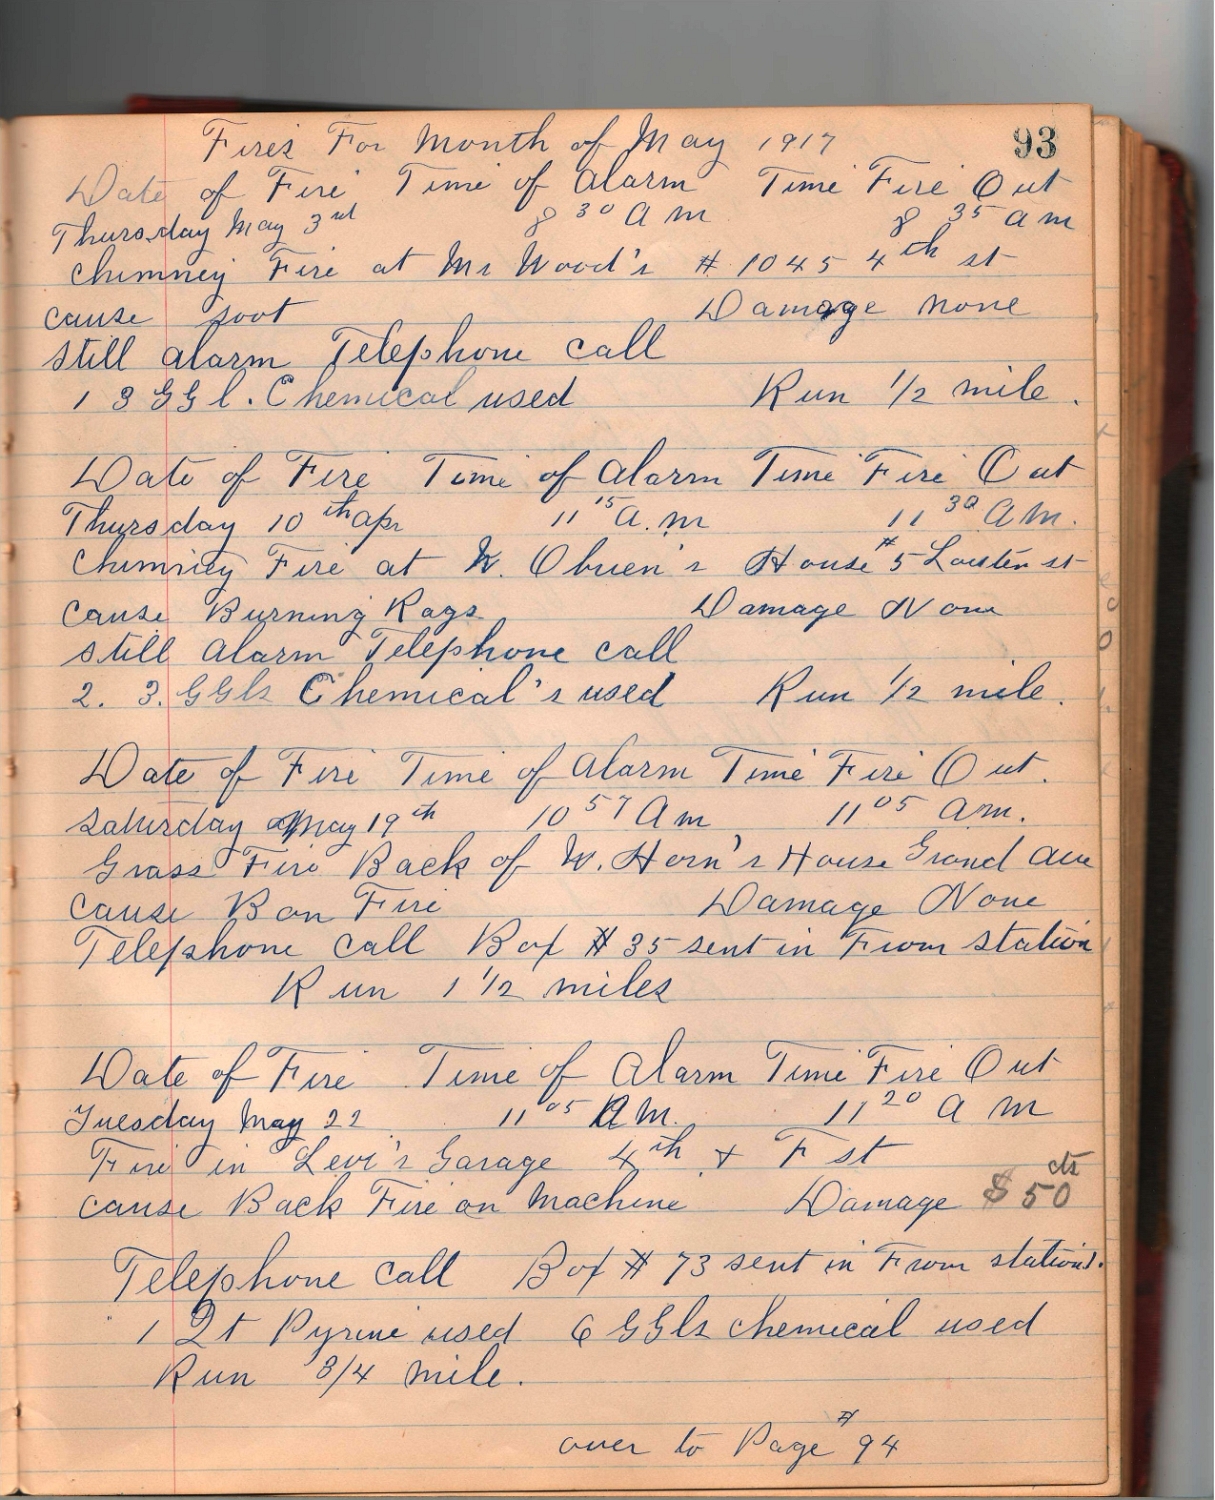 93
Fires For Month of May 1917
Date of Fire Time of Alarm Time Fire Out
Thursday May 3rd 8 30 A m 8 35 a m
chimney Fire at Mr Wood's # 1045 4th st
cause soot Damage none
still alarm Telephone call
1 3 GGl. Chemical used Run 1/2 mile.
Date of Fire Time of Alarm Time Fire Out
Thursday 10th Apr 11 15 A.m 11 30 A M.
Chimney Fire at W. Obrien's House #5 st
cause Burning Rags Damage None
still Alarm Telephone call
2. 3. GGls Chemical's used Run 1/2 mile.
Date of Fire Time of Alarm Time Fire Out.
Saturday May 19th 10 57 A m 11 05 am.
Grass Fire Back of W. Horn's House Grand Ave
cause Bon Fire Damage None
Telephone call Box # 35 sent in From station
Run 1 1/2 miles
Date of Fire Time of Alarm Time Fire Out
Tuesday May 22 11 05 A M. 11 20 a m
Fire in Levi's Garage 4th & F st
cause Back Fire on Machine Damage $ 50 cts
Telephone call Box # 73 sent in From station.
1 Qt Pyrine used 6 GGls chemical used
Run 3/4 mile.
over to Page # 94